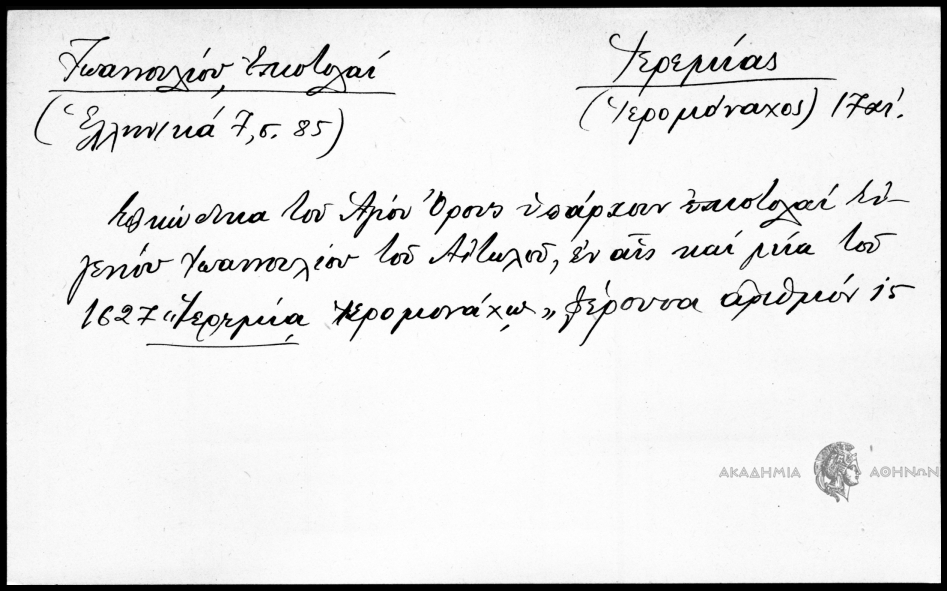 Ἰωαννουλίου, Ἐπιστολαί
(Ἑλληνικά 7, σ. 85)
Ἱερεμίας
(Ἱερομόναχος) 17 αἰ.
Εἰς κώδικα τοῦ Ἁγίου Ὄρους ὑπάρχουν ἐπιστολαί Εὐ-
γενίου Ἰωαννουλίου τοῦ Αἰτωλοῦ, ἐν αἷς καί μία τοῦ
1627 «Ἱερεμίᾳ Ἱερομονάχῳ» φέρουσα ἀριθμόν 15
ΑΚΑΔΗΜΙΑ ΑΘΗΝΩΝ